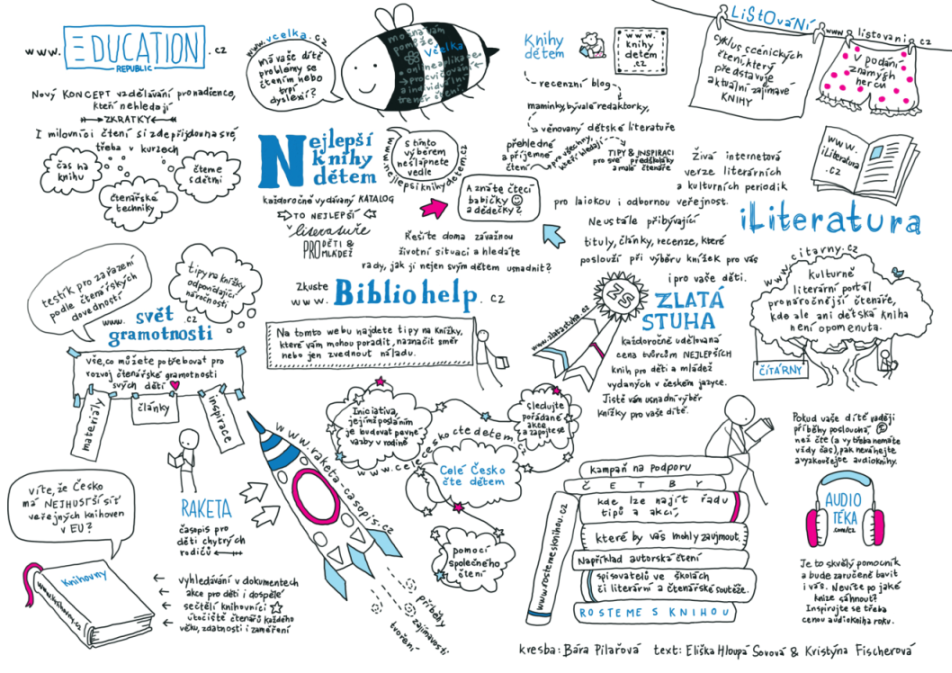 www. EDUCATION .cz
REPUBLIC
Nový KONCEPT vzdělávání pro nadšence,
kteří nehledají
ZKRATKY
I milovníci čtení si zde přijdou na své,
třeba v kurzech
čas na
knihu
čtenářské
techniky
čteme
s dětmi
www.vcelka.cz
má vaše dítě
problémy se
čtením nebo
trpí
dyslexií?
možná vám
pomůže
včelka
online aplikace
pro cvičení
a individuální
trénink čtení
Knihy
dětem
www.
knihy
dětem
.cz
recenzní blog
maminky, bývalé redaktorky,
věnovaný dětské literatuře
přehledné
a příjemné
čtení
pro všechny,
kteří hledají
TIPY & INSPIRACI
pro své předškoláky
a malé čtenáře
LiStOVáNí
www.listovani.cz
cyklus scénických
čtení, který
představuje
aktuální zajímavé
KNIHY
V podání
známých
herců
Nejlepší
knihy
dětem
s tímto
výběrem
nešlápnete
vedle
www.nejlepsiknihydetem.cz
každoročně vydávaný KATALOG
TO NEJLEPŠÍ
z literatury
PRO DĚTI &
MLÁDEŽ
A znáte čtecí
babičky
a dědečky?
Živá internetová
verze literárních
a kulturních periodik
pro laickou i odbornou veřejnost.
www.
iLiteratura
.cz
iLiteratura
Neustále přibývající
tituly, články, recenze, které
poslouží při výběru knížek pro vás
i pro vaše děti.
Řešíte doma závažnou
životní situaci a hledáte
rady, jak ji nejen svým dětem usnadnit?
Zkuste
www. Bibliohelp. cz
Na tomto webu najdete tipy na knížky,
které vám mohou poradit, naznačit směr
nebo jen zvednout náladu.
testík pro zařazení
podle čtenářských
dovedností
tipy na knížky
odpovídající
náročnosti
www. svět .cz
gramotnosti
vše, co můžete potřebovat pro
rozvoj čtenářské gramotnosti
svých dětí
materiály
články
inspirace
ZS
www.zlatastuha.cz
ZLATÁ
STUHA
každoročně udělovaná
cena tvůrcům NEJLEPŠÍCH
knih pro děti a mládež
vydaných v českém jazyce.
Jistě vám usnadní výběr
knížky pro vaše dítě.
www.citarny.cz
kulturně
literární portál
pro náročnější čtenáře,
kde ale ani dětská kniha
není opomenuta.
ČÍTÁRNY
Iniciativa,
jejímž posláním
je budovat pevné
vazby v rodině
sledujte
pořádané
akce
a zapojte se
www.celeceskoctedetem.cz
Celé Česko
čte dětem
pomocí
společného
čtení
www.raketa-casopis.cz
RAKETA
časopis pro
děti chytrých
rodičů
příběhy
zajímavosti
tvoření
víte, že Česko
má NEJHUSTŠÍ síť
veřejných knihoven
v EU?
Knihovny
www.knihovny.cz
vyhledávání v dokumentech
akce pro děti i dospělé
sečtělí knihovníci
útočiště čtenářů každého
věku, zdatnosti i zaměření
kampaň na podporu
ČETBY
kde lze najít řadu
tipů a akcí,
které by vás mohly zaujmout.
Například autorská čtení
spisovatelů ve školách
či literární a čtenářské soutěže.
ROSTEME S KNIHOU
www.rostemesknihou.cz
Pokud vaše dítě raději
příběhy poslouchá
než čte (a vy třeba nemáte
vždy čas), pak neváhejte
a vyzkoušejte audioknihy.
AUDIO
TÉKA
.com/cz
Je to skvělý pomocník
a bude zaručeně bavit
i vás. Nevíte po jaké
knize sáhnout?
Inspirujte se třeba
cenou audiokniha roku.
kresba: Bára Pilařová text: Eliška Hloupá Sovová & Kristýna Fischerová